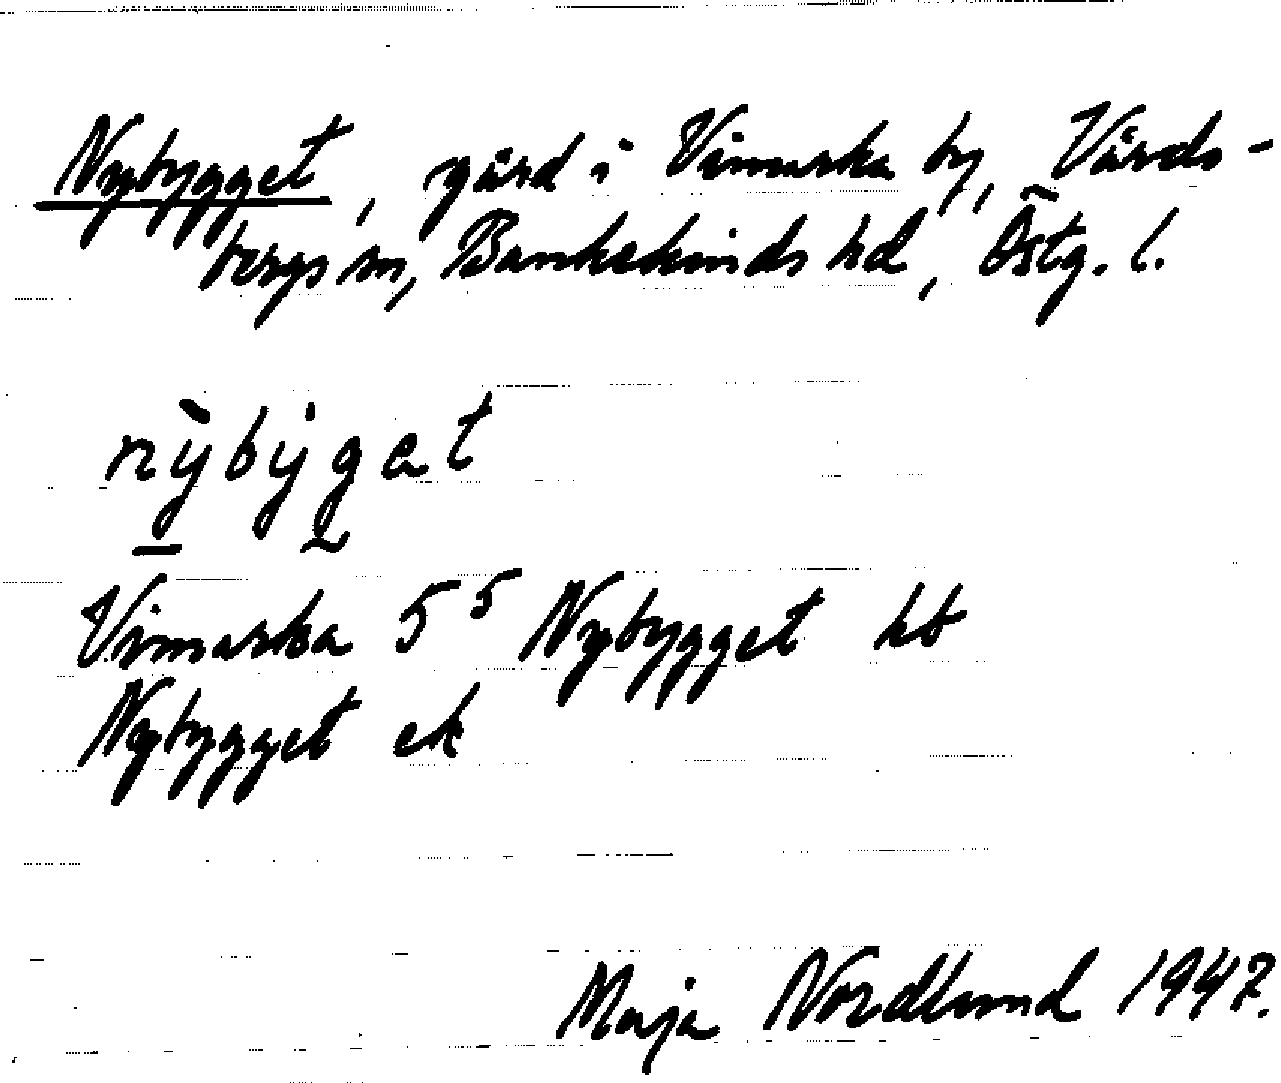 Nybygget, gård i Vimarka by, Vårds-
bergs sn, Bankekinds hd, Östg. l.
nỳ̱bẏg̰et
Vimarka 5⁵ Nybygget hb
Nybygget ek
Maja Nordlund 1947.